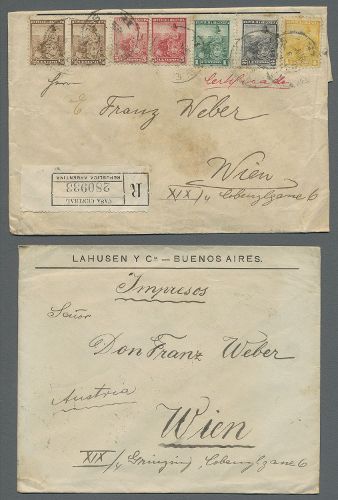 Certificado
Herrn
Franz Weber
Wien
XIX/4 Cobenzlgasse 6
R
CASA CENTRAL
REPUBLICA ARGENTINA
280933
LAHUSEN Y Cᴬ — BUENOS AIRES.
Impresos
Señor
Don Franz Weber
Austria
Wien
XIX/4 Grinzing, Cobenzlgasse 6